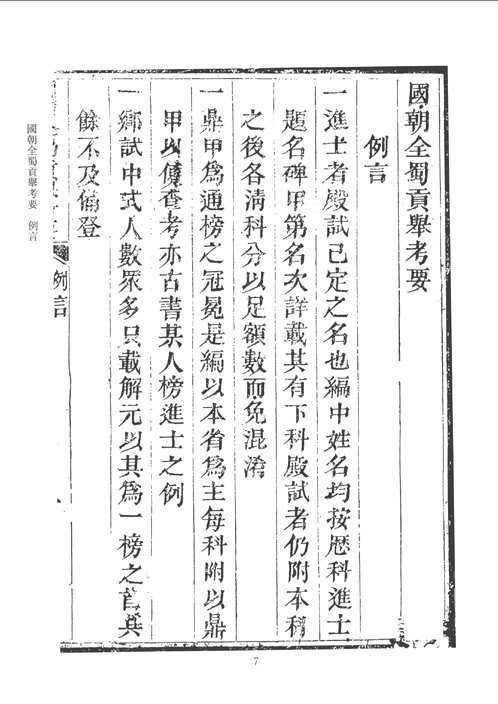 國朝全蜀貢舉考要
例言
一進士者殿試已定之名也編中姓名均按歷科進士
題名碑甲第名次詳載其有下科殿試者仍附本科
之後各清科分以足額數而免混淆
一鼎甲爲通榜之冠冕是編以本省爲主每科附以鼎
甲以備查考亦古書某人榜進士之例
一鄉試中式人數眾多只載解元以其爲一榜之首其
餘不及備登
例言
國朝全蜀貢舉考要 例言
7